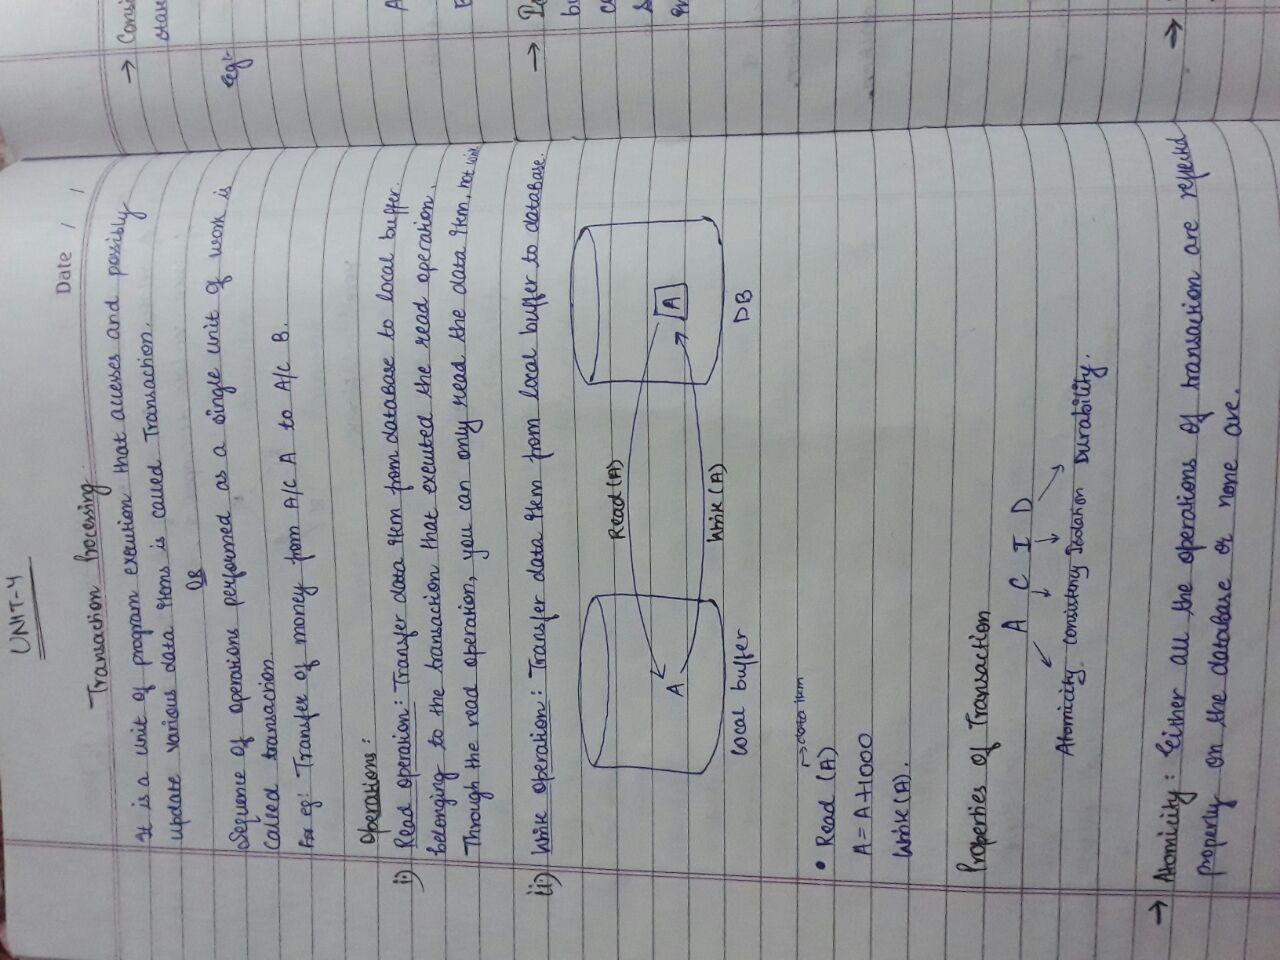 UNIT-4
Date / /
Transaction Processing
It is a unit of program execution that accesses and possibly
update various data items is called Transaction.
OR
Sequence of operations performed as a single unit of work is
called transaction.
For eg: Transfer of money from A/C A to A/C B.
Operations:
i) Read operation: Transfer data item from database to local buffer.
belonging to the transaction that executed the read operation.
Through the read operation, you can only read the data item, not write
ii) Write operation: Transfer data item from local buffer to database.
Read (A)
A
A
Write (A)
local buffer
DB
→ data item
• Read (A)
A = A+1000
Write (A).
Properties of Transaction
A C I D
Atomicity Consistency Isolation Durability.
→ Atomicity: Either all the operations of transaction are reflected
properly on the database or none are.
→
eg:-
A
→
→